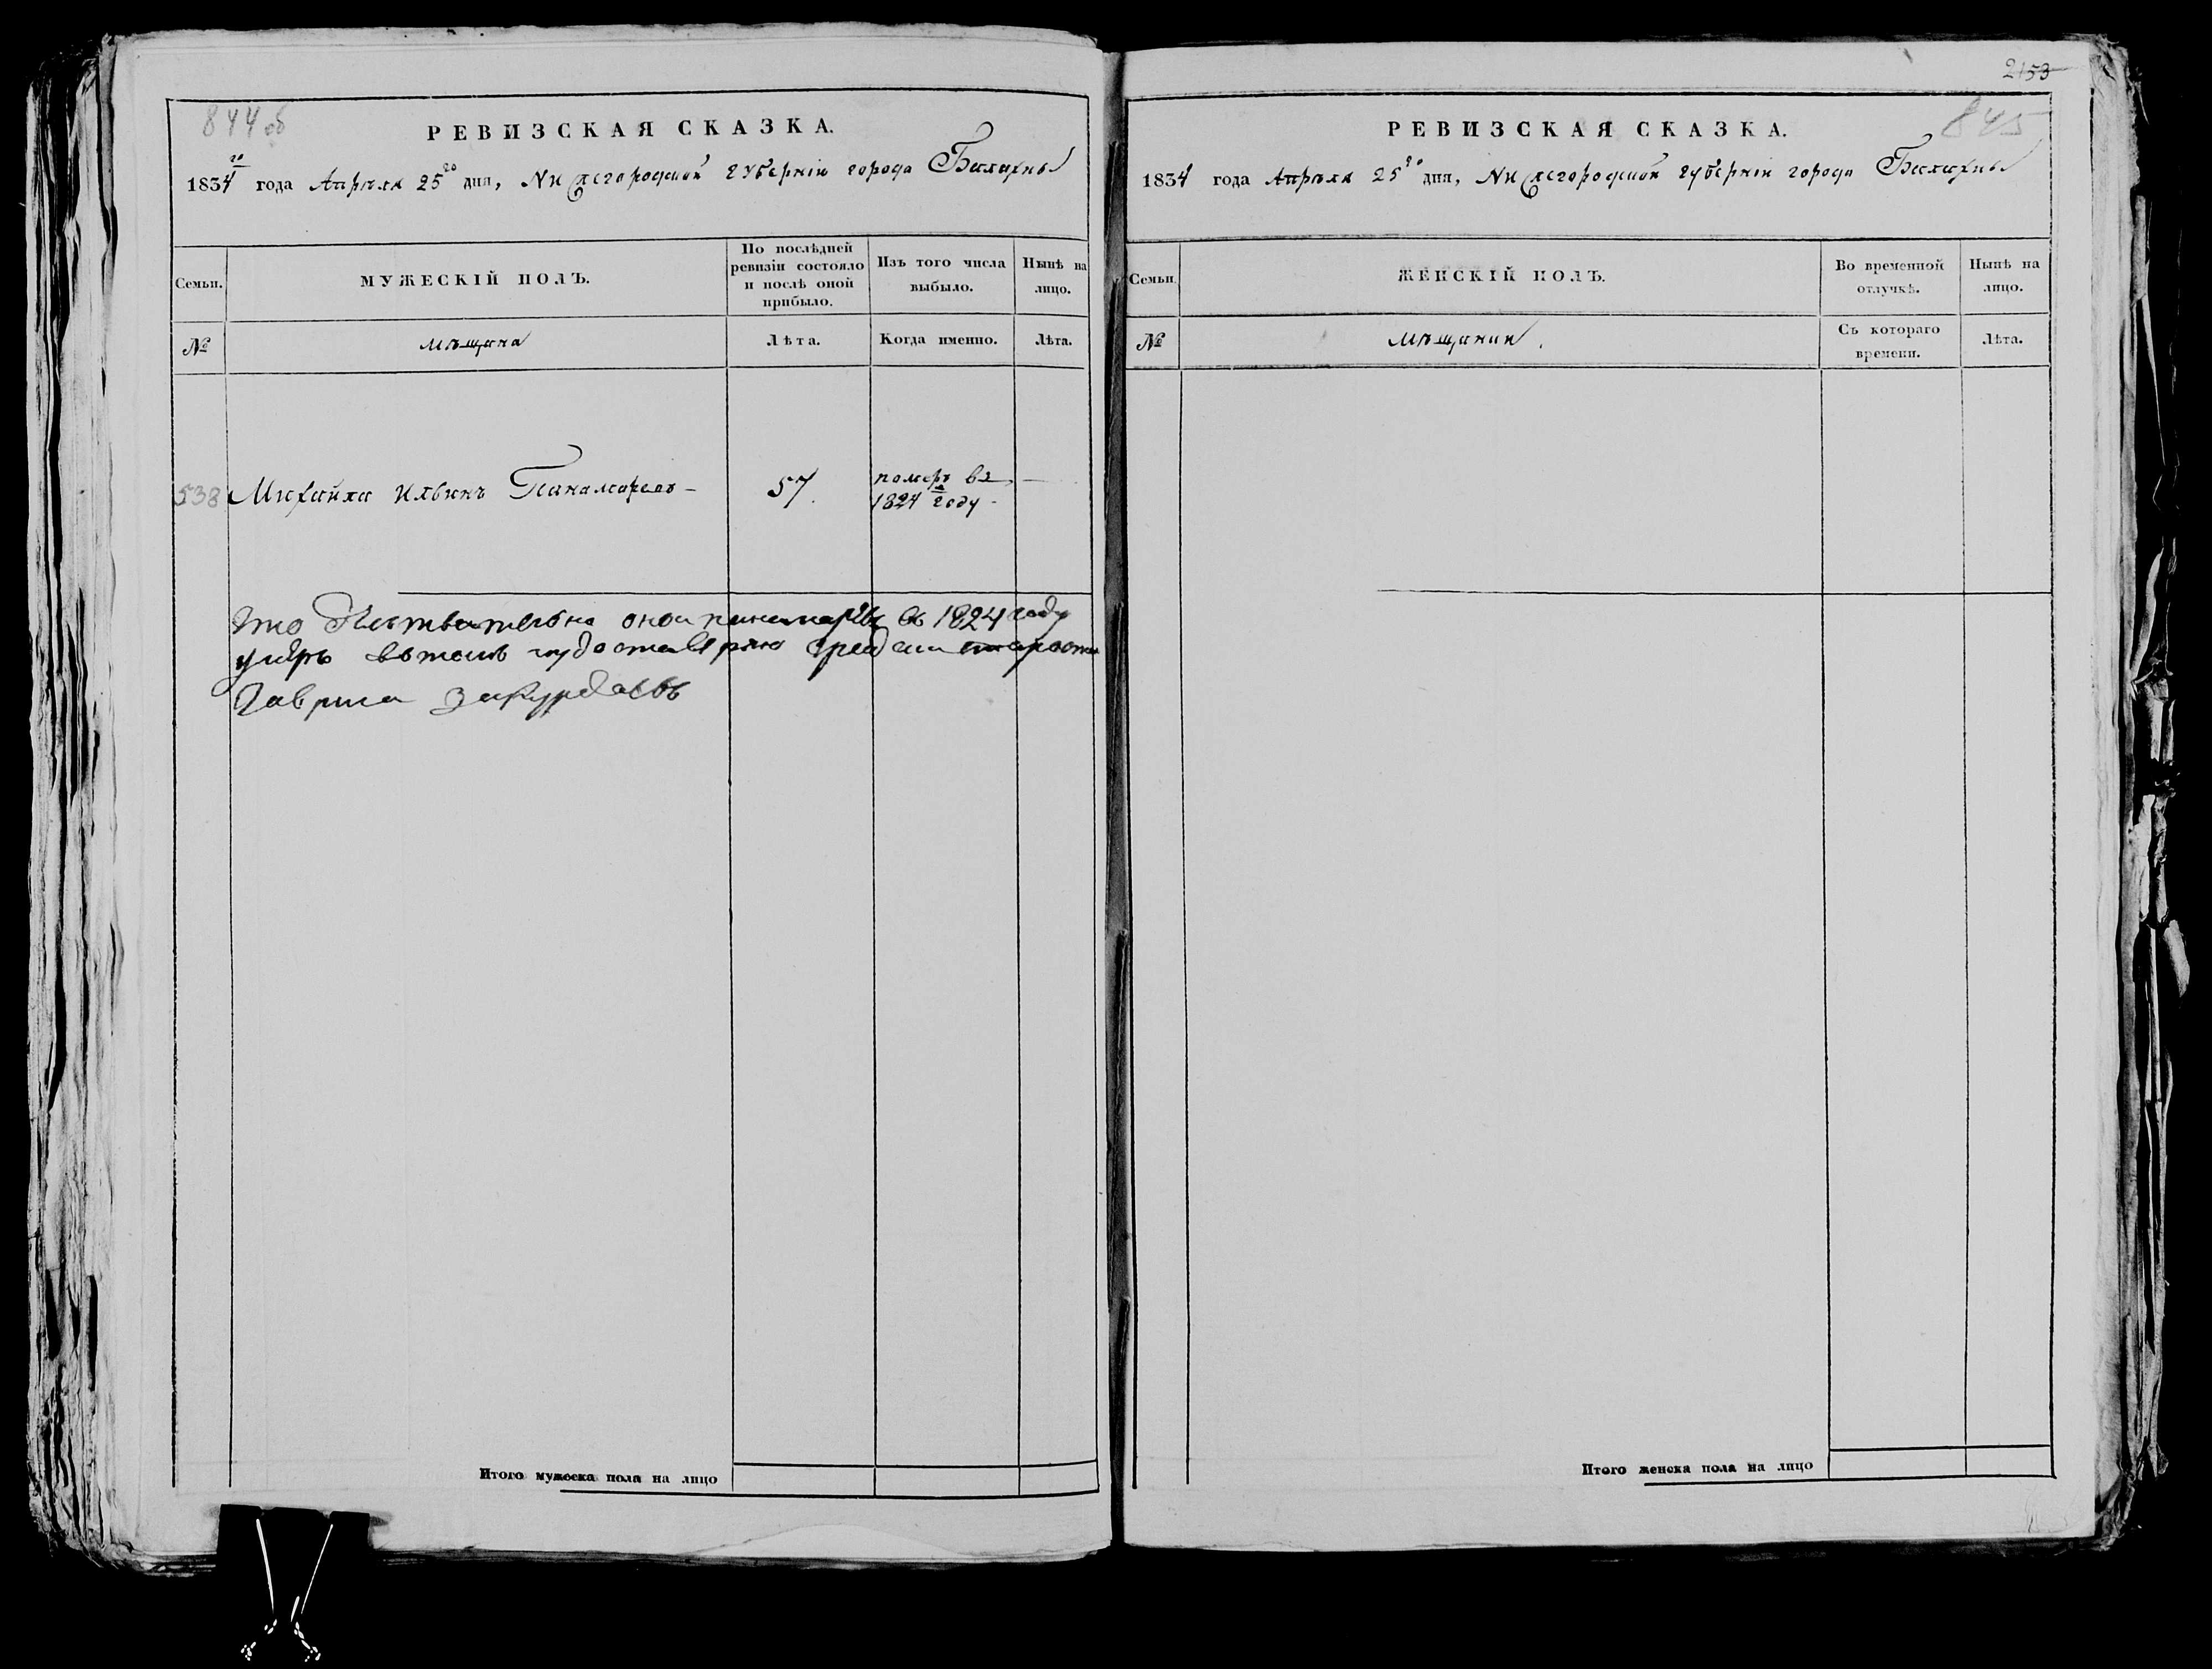 844 об
РЕВИЗСКАЯ СКАЗКА.
1834го года Апрѣля 25го дня, Нижегородской губерніи города Балахны
Семьи.
МУЖЕСКІЙ ПОЛЪ.
По послѣдней ревизіи состояло и послѣ оной прибыло.
Изъ того числа выбыло.
Нынѣ на лицо.
№
мѣщана
Лѣта.
Когда именно.
Лѣта.
538 Михайла Ильинъ Панамаревъ - 57. померъ въ —
1824м году -
что действительно оной панамарѣвъ въ 1824 году
умеръ въ томъ и удоставѣряю градски староста
Гаврила Закурдаевъ
Итого мужеска пола на лицо
2153
845
РЕВИЗСКАЯ СКАЗКА.
1834 года Апрѣля 25го дня, Нижегородской губерніи города Балахны
Семьи.
ЖЕНСКІЙ ПОЛЪ.
Во временной отлучкѣ.
Нынѣ на лицо.
№
мѣщанки.
Съ котораго времени.
Лѣта.
Итого женска пола на лицо